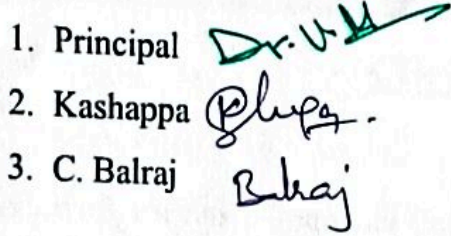 1. Principal Dr. V.
2. Kashappa
3. C. Balraj Balraj